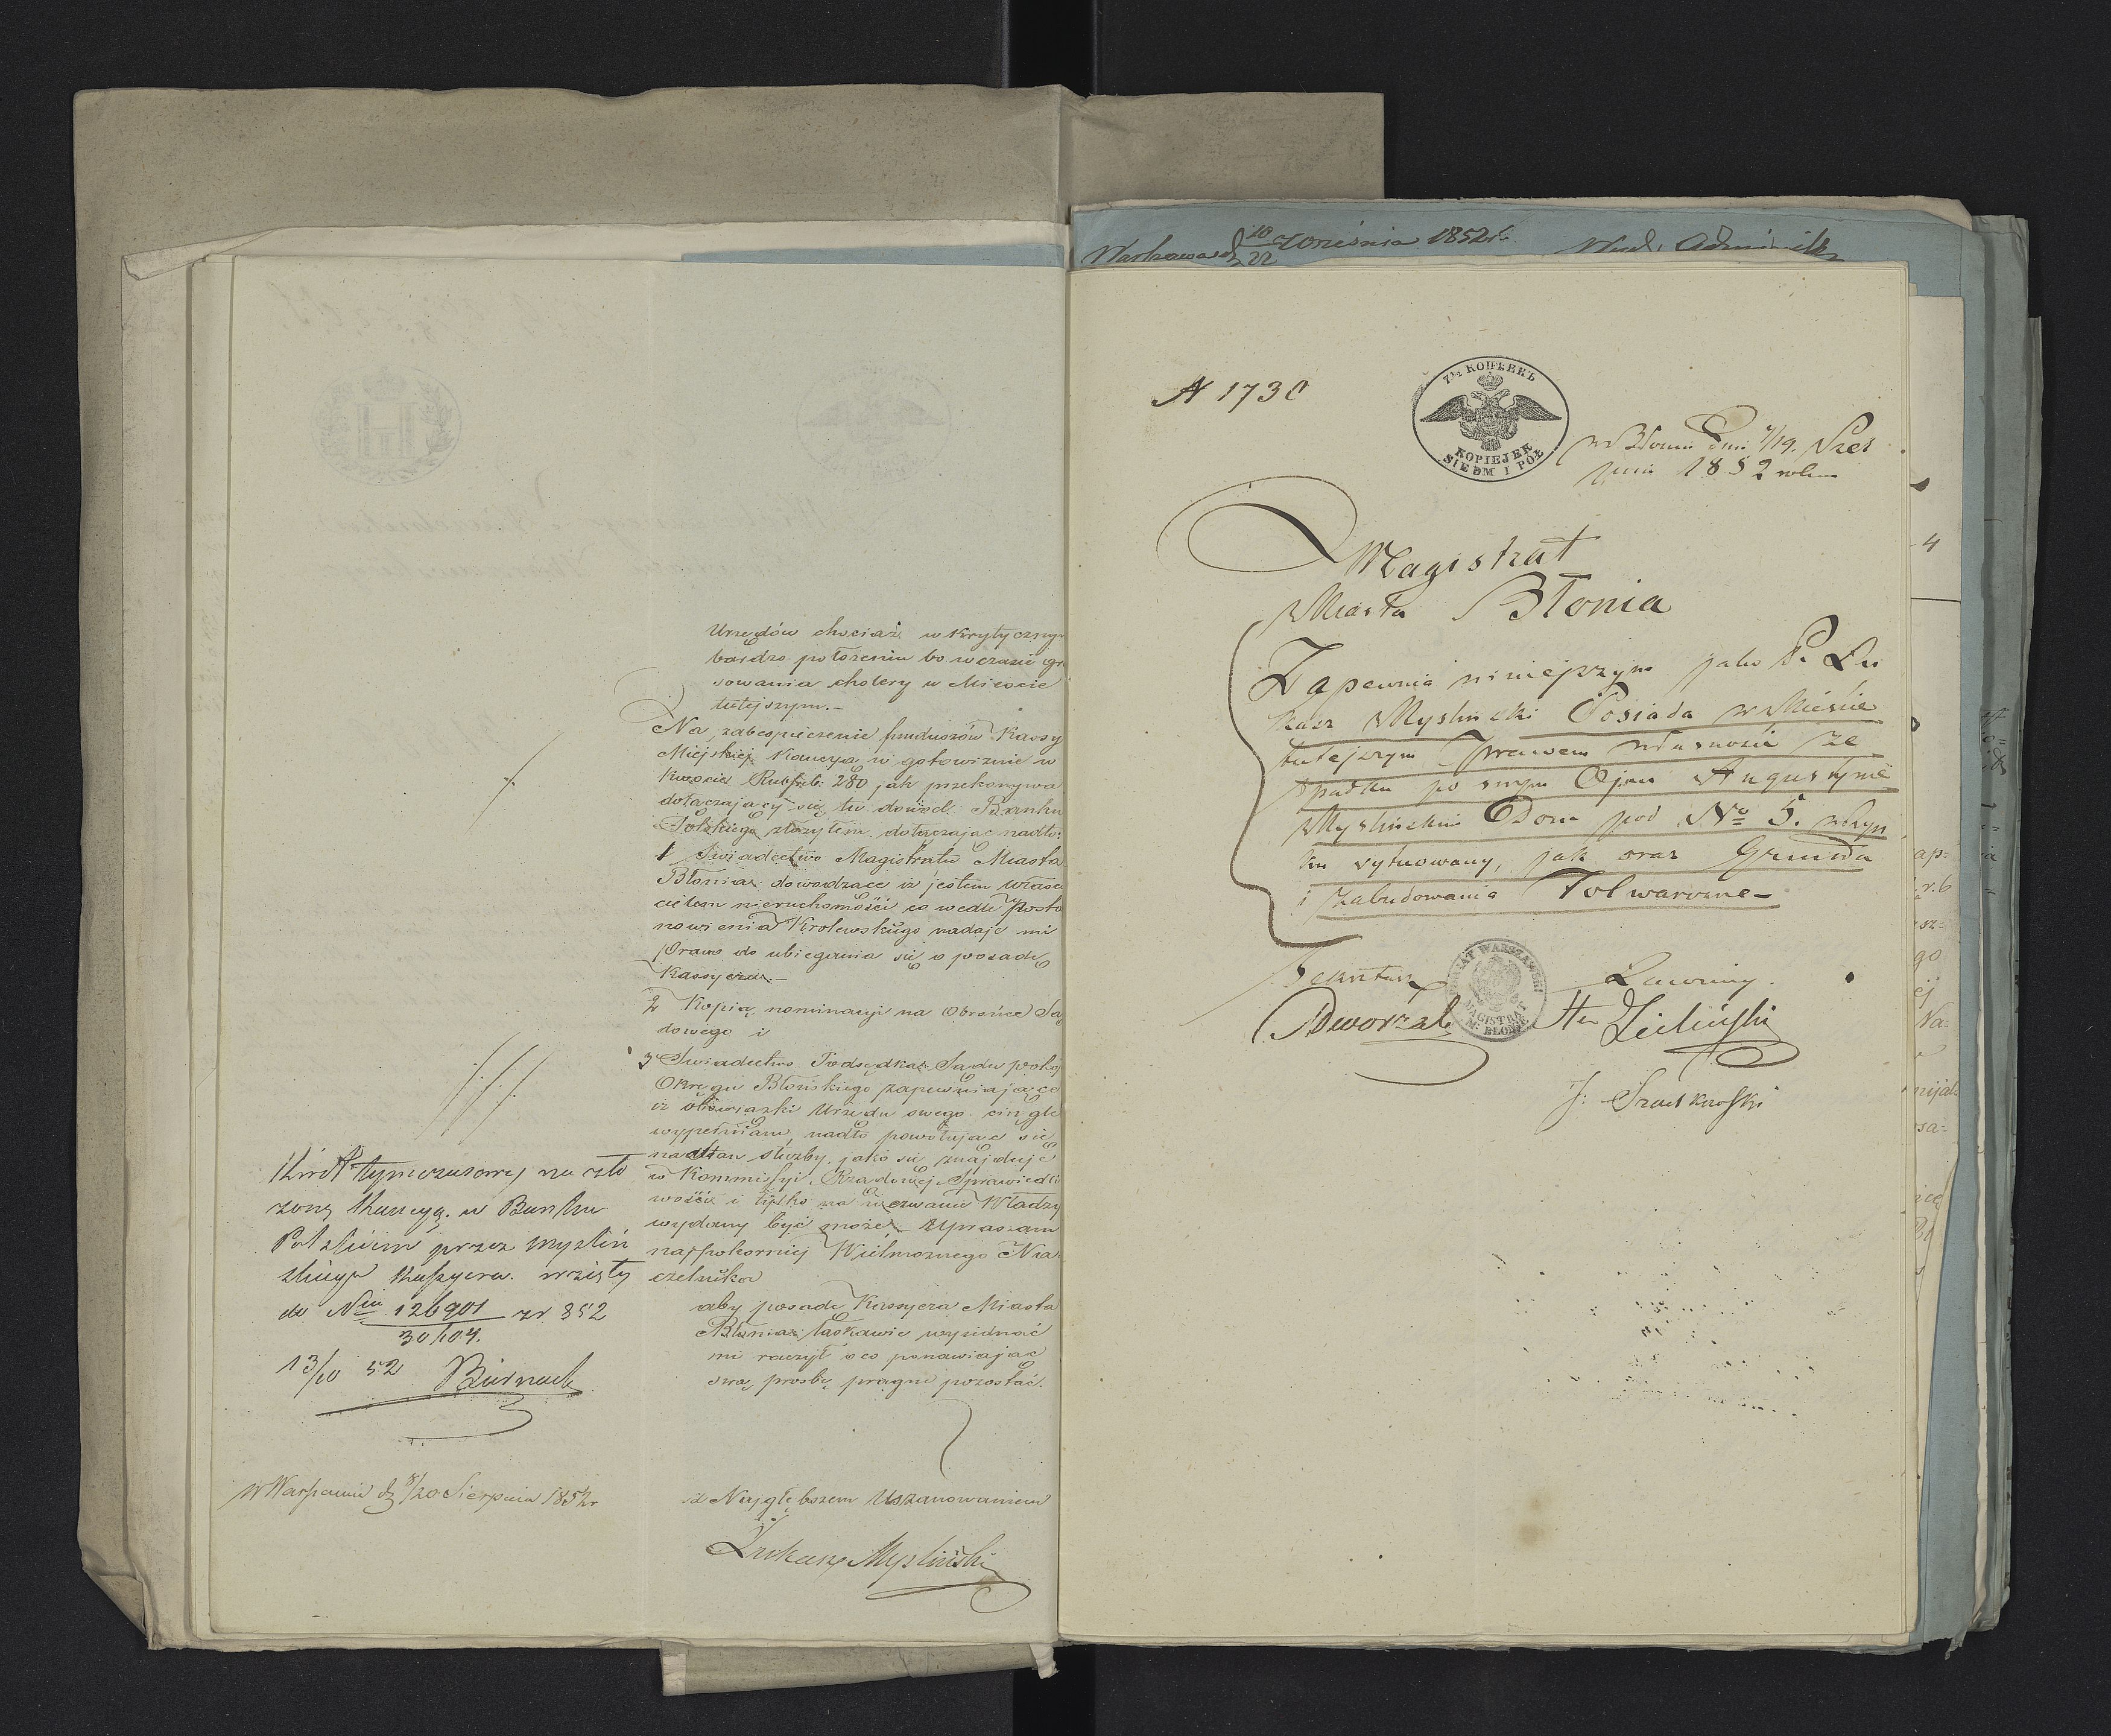 Urzędów chociaż w krytycznym
bardzo położeniu bo w czasie gra
sowania cholery w Mieście
tutejszym.-
Na zabezpieczenie funduszów Kassy
Miejskiej Kaucya w gotowiznie w
kwocie Rubsr: 280 jak przekonywa
dołączający się tu dowód Banku
Polskiego złożyłem. dołączając nadto:
1 Świadectwo Magistratu Miasta
Błonia dowodzące iż jestem właści
cielem nieruchomości co wedle Posta
nowienia Krolewskiego nadaje mi
prawo do ubiegania się o posadę
Kassyera.-
2 Kopią nominacyi na Obrońcę Są
dowego i
3 Swiadectwo Podsędka Sądu pokoj
Okręgu Błońskiego zapewniające
iż obowiązki Urzędu swego ciągle
wypełniam, nadto powołując się
na stan służby jako się znajduje
w Kommissyi Rządowej Sprawiedli
wości i tylko na wezwanie Władzy
wydany być może, Upraszam
najpokorniej Wielmożnego Na
czelnika
aby posadę Kassyera Miasta
Błonia łaskawie wyjednać
mi raczył o co ponawiając
swą prosbę pragnę pozostać.
z Najgłębszem Uszanowaniem
Łukasz Myśliński
Kwit tymczasowy na zło
żoną Kaucyą w Banku
Polskim przez Myśliń
skiego Kassyera. wzięty
do Nru 126901 zr 852
30104.
13/10 52 Biernack
w Warszawie d 8/20 Sierpnia 1852r
Warszawa d 10/22 Września 1852r.
N 1730
7½ КОПѢЕКЪ
KOPIEJEK
SIEDM I PÓŁ
w Błoniu Dnia 7/19. Sier
pnia 1852 roku
Magistrat
Miasta Błonia
Zapewnia niniejszym jako P. Łu
kasz Myśliński Posiada w Mieście
tutejszym prawem własności ze
spadku po swym Ojcu Augustynie
Myślińskim Dom pod No 5. w Ryn
ku sytuowany, jak oraz Grunta
i zabudowania Folwarczne-
Sekretarz Ławnicy.
Dworzak Zieliński
POWIAT WARSZAWSKI
MAGISTRAT
M: BŁONIE